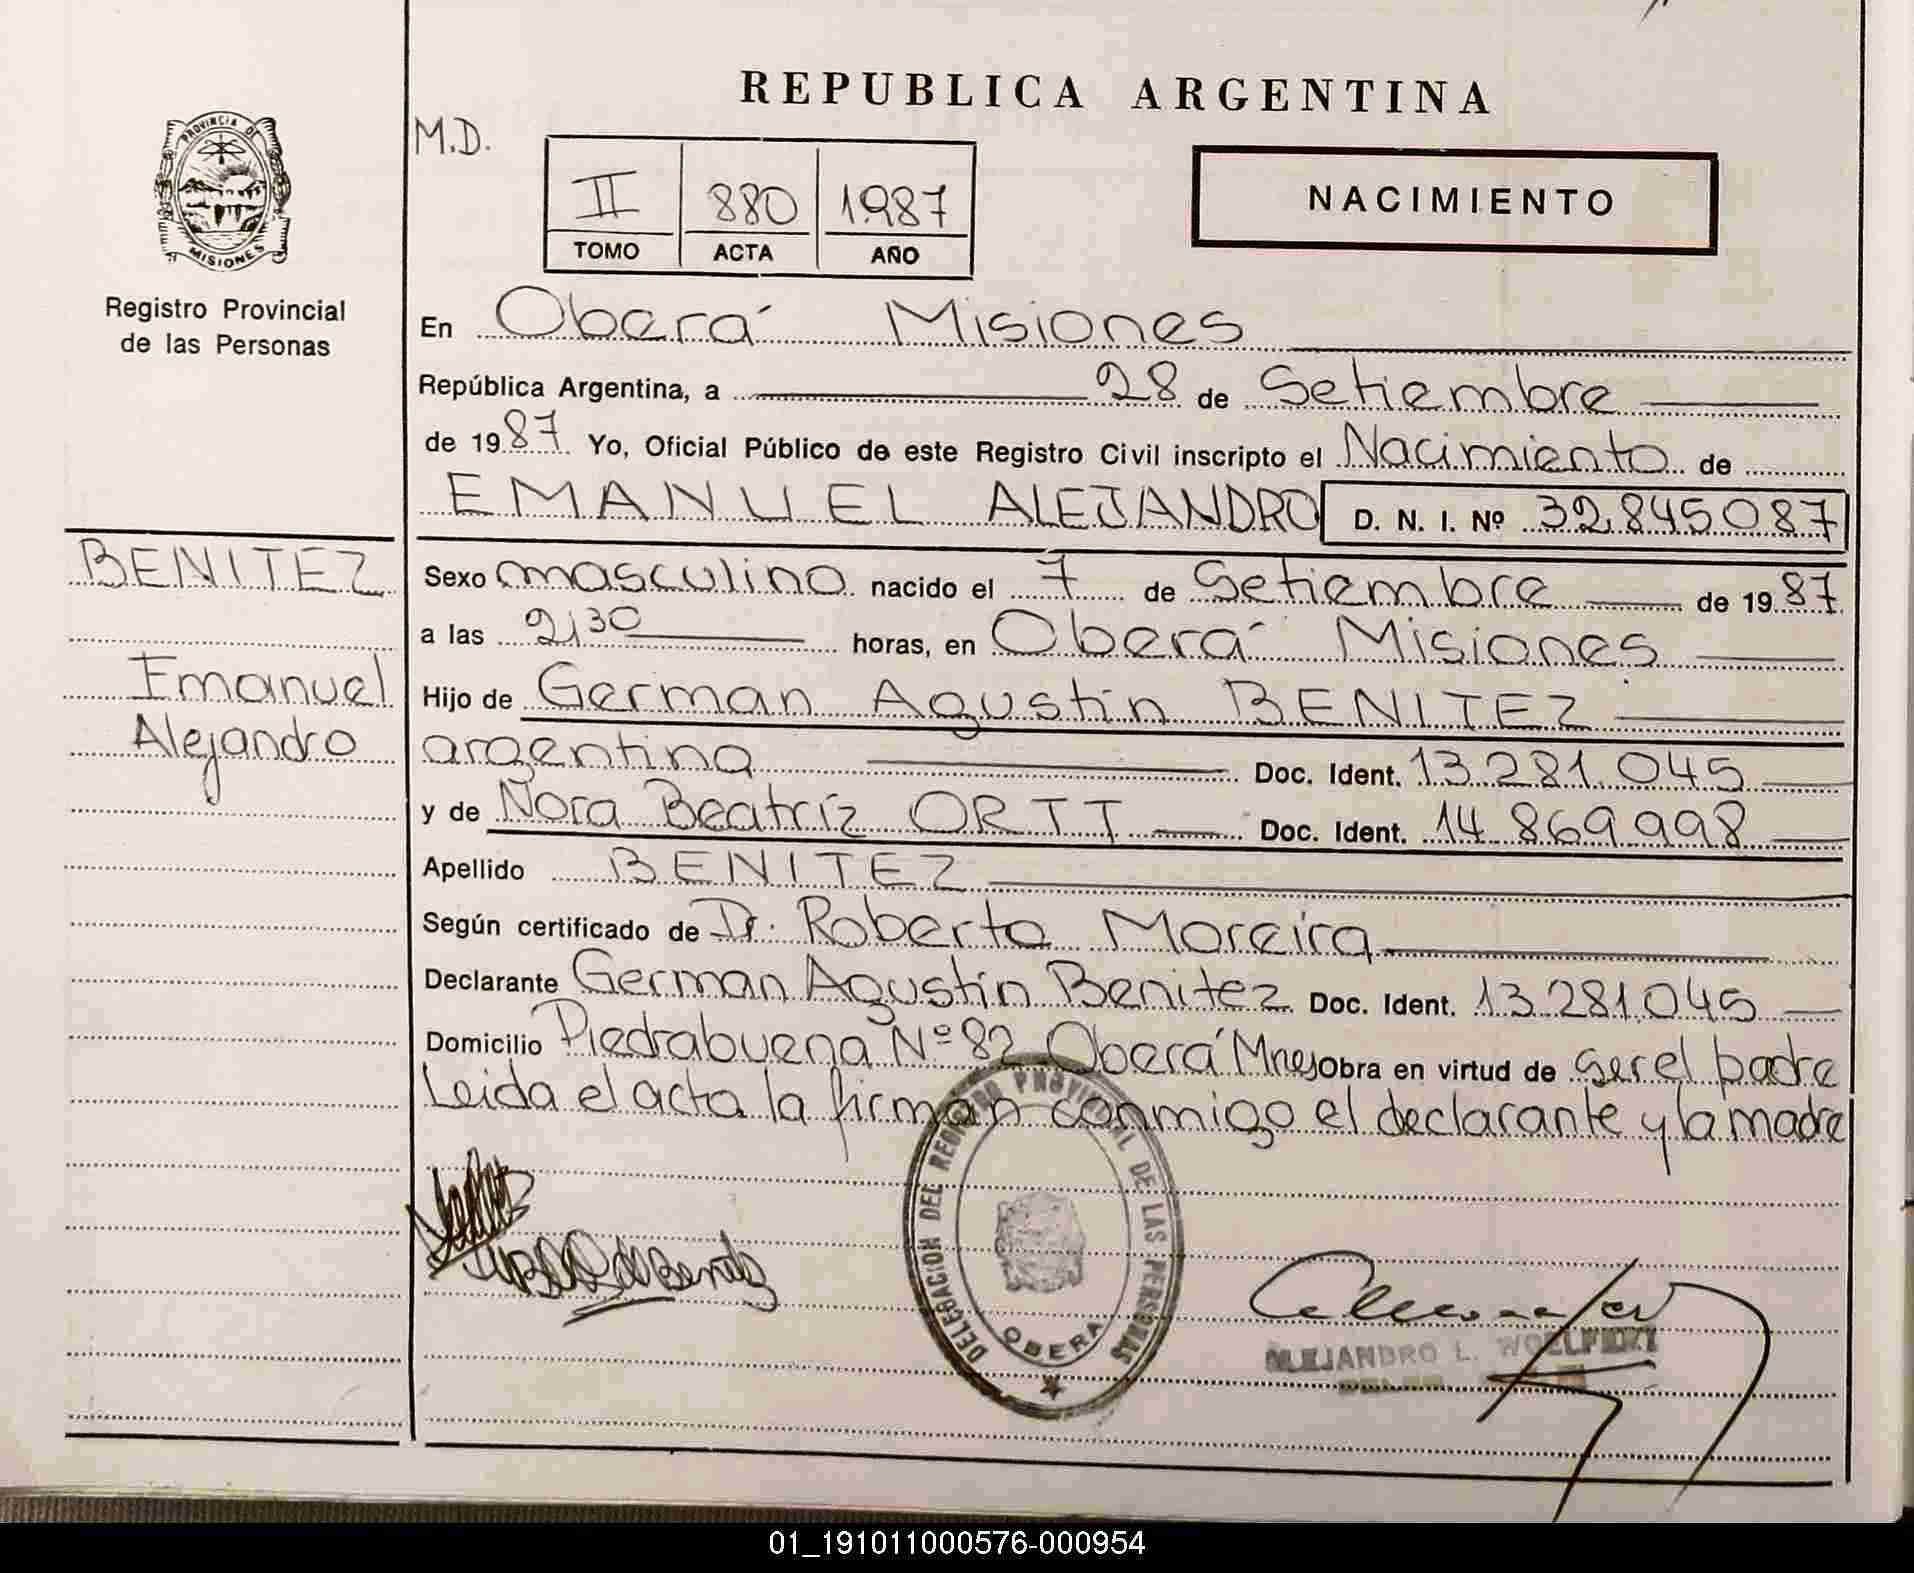 REPUBLICA ARGENTINA
PROVINCIA DE
MISIONES
Registro Provincial
de las Personas
M.D.
II 880 1987
TOMO ACTA AÑO
NACIMIENTO
En Oberá Misiones
República Argentina, a 28 de Setiembre
de 1987 Yo, Oficial Público de este Registro Civil inscripto el Nacimiento de
EMANUEL ALEJANDRO D. N. I. Nº 32.845.087
BENITEZ
Emanuel
Alejandro
Sexo masculino nacido el 7 de Setiembre de 1987
a las 2,30 horas, en Oberá Misiones
Hijo de German Agustín BENITEZ
argentina Doc. Ident. 13.281.045
y de Nora Beatríz ORTT Doc. Ident. 14.869.998
Apellido BENITEZ
Según certificado de Dr. Roberto Moreira
Declarante German Agustín Benitez Doc. Ident. 13.281.045
Domicilio Piedrabuena Nº 82 Oberá Mnes Obra en virtud de ser el padre
Leida el acta la firman conmigo el declarante y la madre
DELEGACION DEL REGISTRO PROVINCIAL DE LAS PERSONAS
OBERA
ALEJANDRO L.
01_191011000576-000954